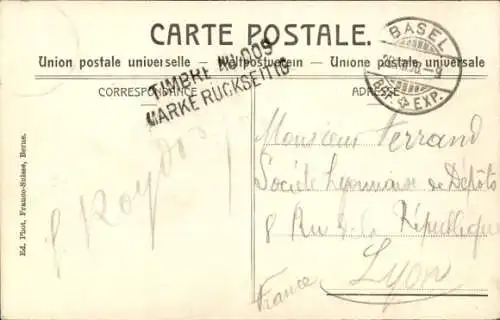 CARTE POSTALE.
Union postale universelle – Weltpostverein – Unione postale universale
TIMBRE
MARKE RÜCKSEITIG
BASEL
EXP.
CORRESPONDANCE
ADRESSE
Ed. Phot. Franco-Suisse, Berne.
Monsieur Ferrand
Société Lyonnaise de Dépôts
8 Rue de la République
Lyon
France